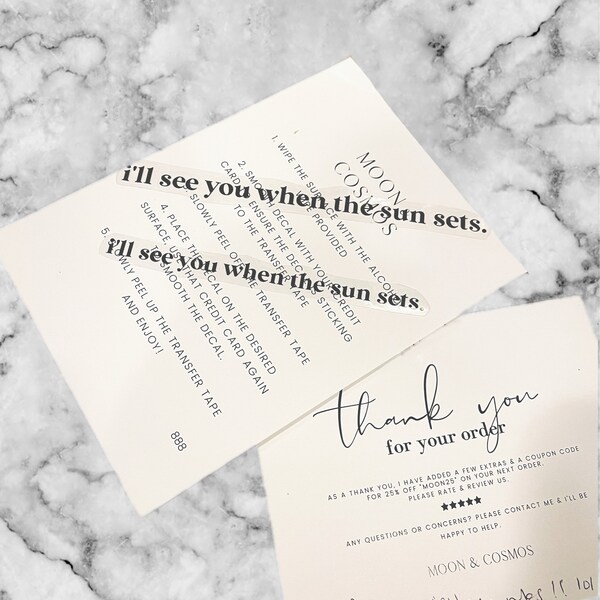 MOON
COSMOS
1. WIPE THE SURFACE WITH THE ALCOHOL
PROVIDED
2. SMOOTH DECAL WITH YOUR CREDIT
CARD ENSURE THE DECAL IS STICKING
TO THE TRANSFER TAPE
SLOWLY PEEL OFF THE TRANSFER TAPE
4. PLACE THE DECAL ON THE DESIRED
SURFACE, USE THAT CREDIT CARD AGAIN
SMOOTH THE DECAL.
5. SLOWLY PEEL UP THE TRANSFER TAPE
AND ENJOY!
888
i'll see you when the sun sets.
i'll see you when the sun sets.
thank you
for your order
AS A THANK YOU, I HAVE ADDED A FEW EXTRAS & A COUPON CODE
FOR 25% OFF "MOON25" ON YOUR NEXT ORDER.
PLEASE RATE & REVIEW US.
★★★★★
ANY QUESTIONS OR CONCERNS? PLEASE CONTACT ME & I'LL BE
HAPPY TO HELP.
MOON & COSMOS